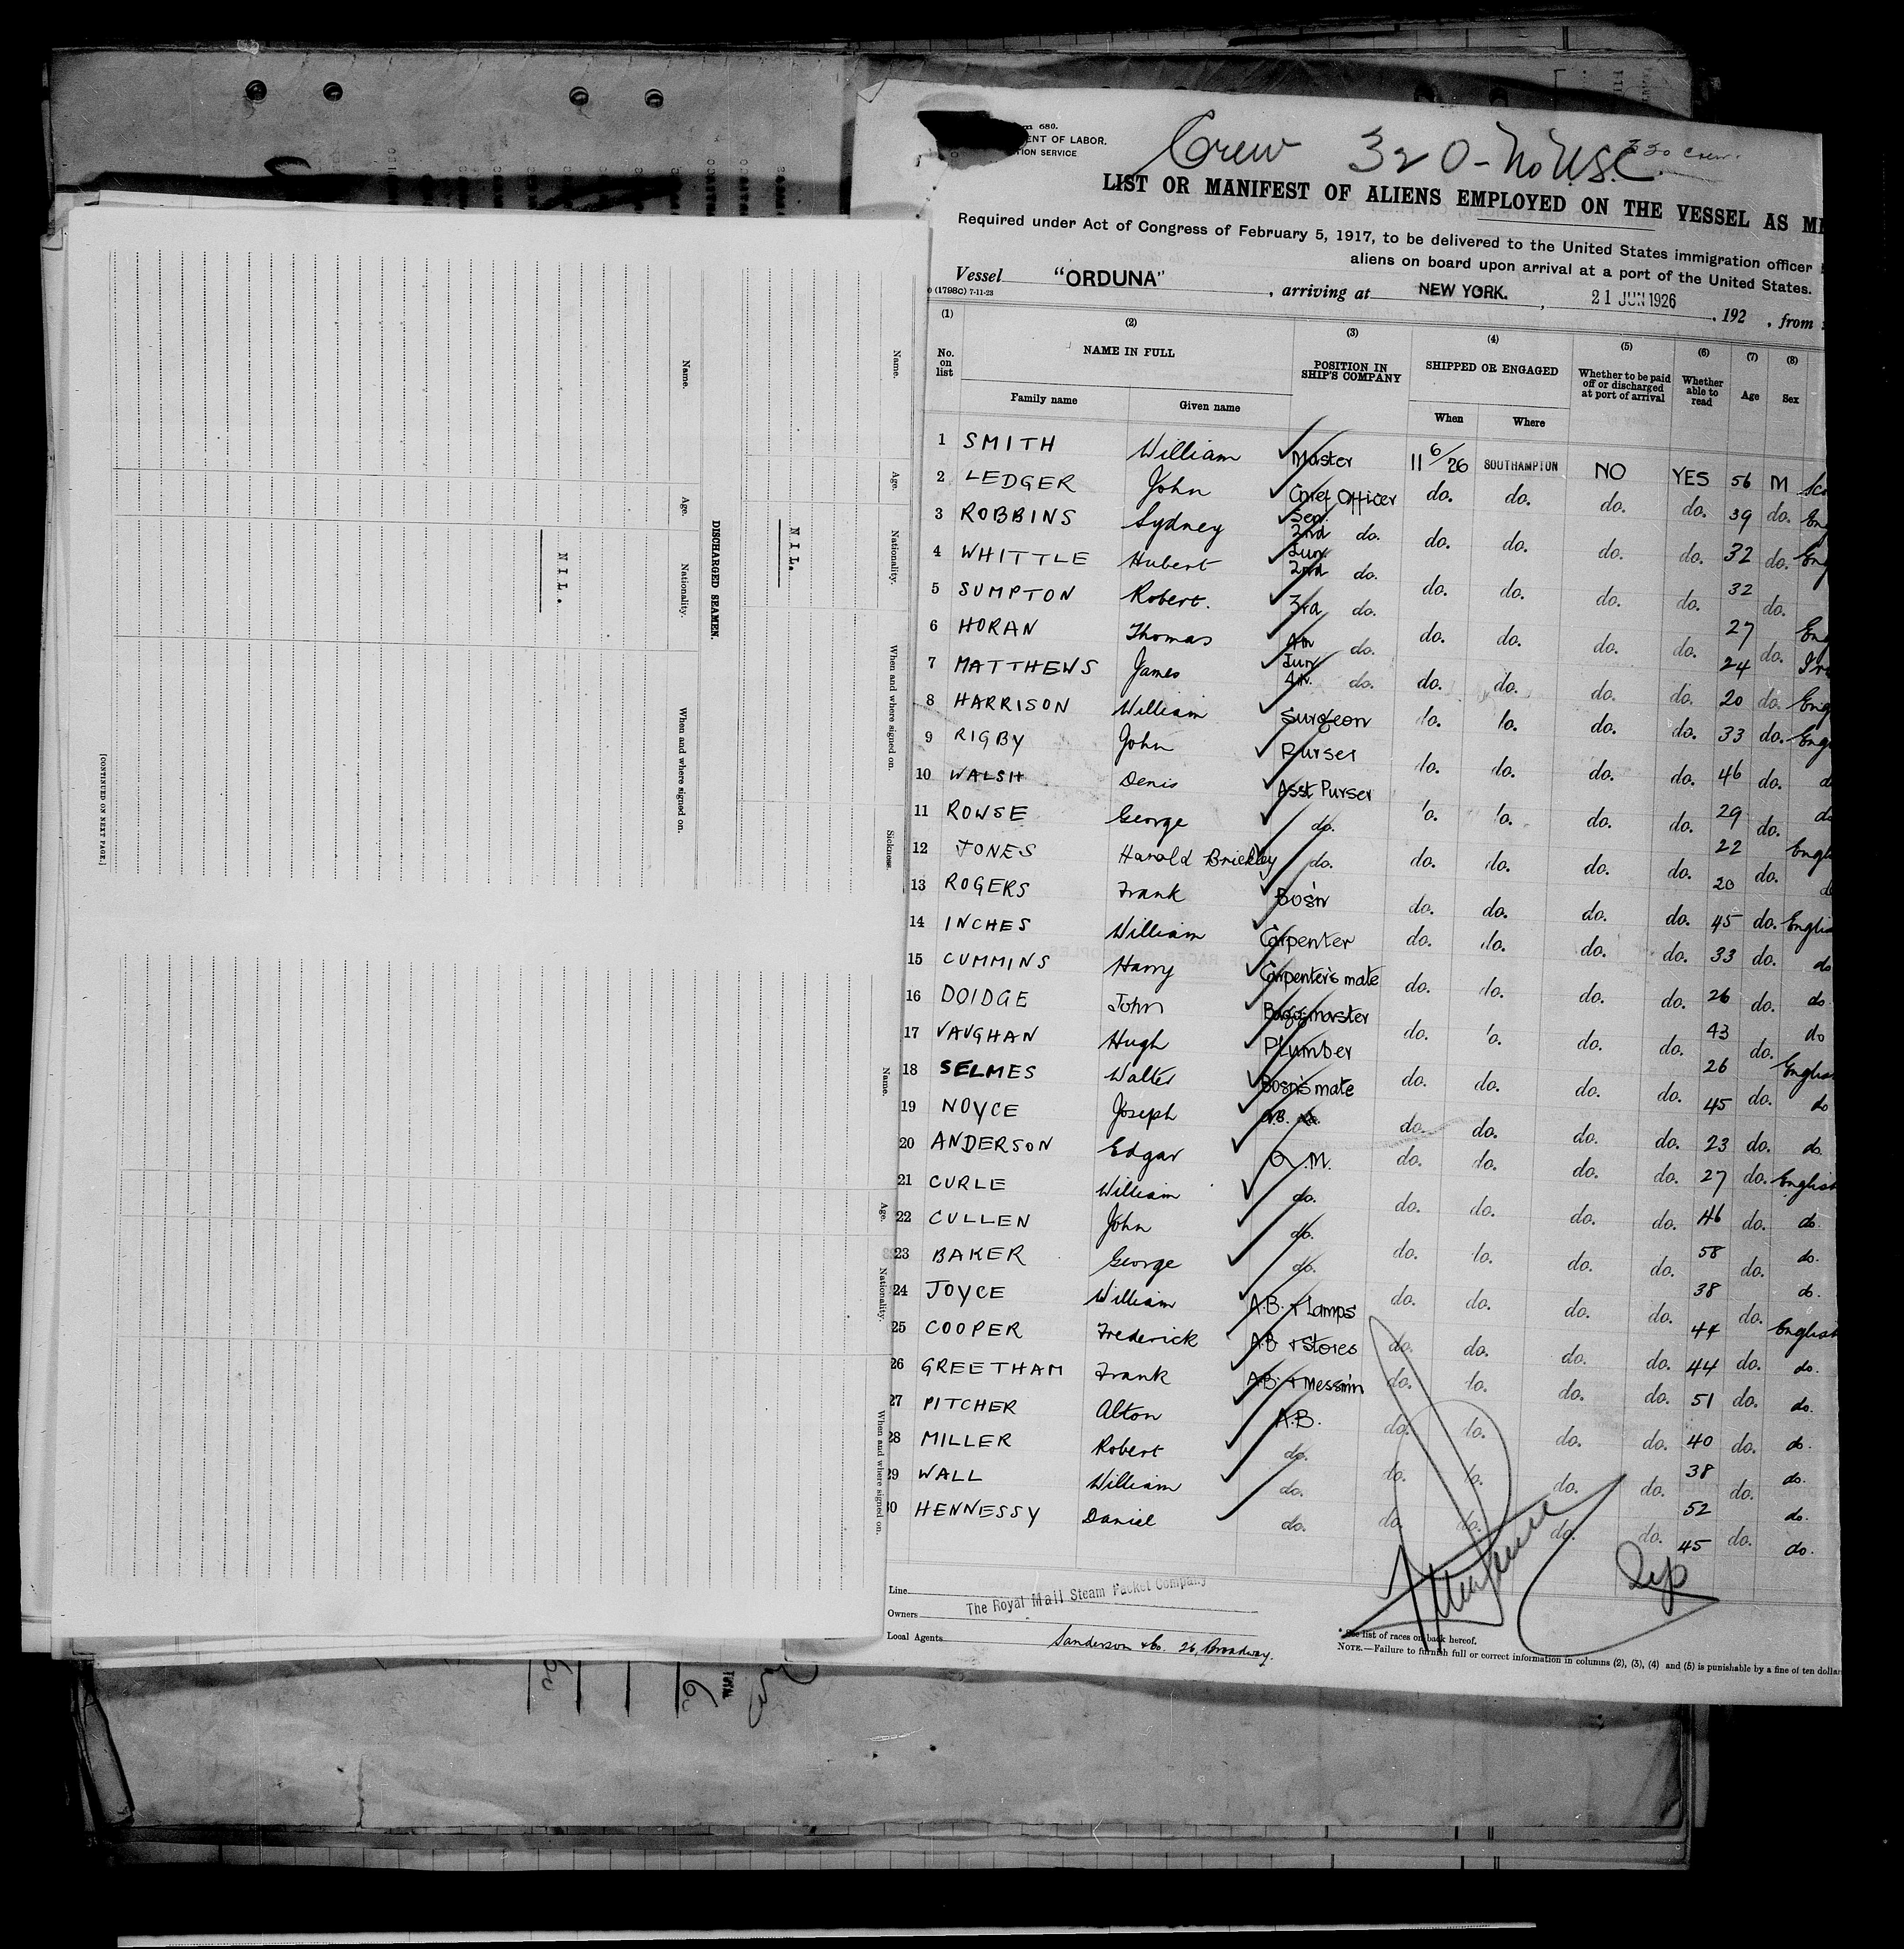 Name.
Age.
Nationality.
When and where signed on.
Sickness.
N I L.
DISCHARGED SEAMEN.
Name.
Age.
Nationality.
When and where signed on.
N I L.
[CONTINUED ON NEXT PAGE.]
Name.
Age.
Nationality.
When and where signed on.
680.
ENT OF LABOR.
TION SERVICE
Crew 320 - No U.S.C.
LIST OR MANIFEST OF ALIENS EMPLOYED ON THE VESSEL AS
Required under Act of Congress of February 5, 1917, to be delivered to the United States immigration officer
aliens on board upon arrival at a port of the United States.
Vessel "ORDUNA", arriving at NEW YORK., 21 JUN 1926, 192 , from
(1798C) 7-11-23
(1) (2) (3) (4) (5) (6) (7) (8)
No. on list NAME IN FULL POSITION IN SHIP'S COMPANY SHIPPED OR ENGAGED Whether to be paid off or discharged at port of arrival Whether able to read Age Sex
Family name Given name When Where
1 SMITH William Master 11 6/26 SOUTHAMPTON NO YES 56 M
2 LEDGER John Chief Officer do. do. do. do. 39 do.
3 ROBBINS Sydney Sen. 2nd do. do. do. do. do. 32 do.
4 WHITTLE Hubert Jun 2nd do. do. do. do. do. 32 do.
5 SUMPTON Robert. 3rd do. do. do. do. do. 27 do.
6 HORAN Thomas 4th do. do. do. do. do. 24 do.
7 MATTHEWS James Jun 4th. do. do. do. do. do. 20 do.
8 HARRISON William Surgeon do. do. do. do. 33 do.
9 RIGBY John Purser do. do. do. do. 46 do.
10 WALSH Denis Asst Purser do. do. do. do. 29 do.
11 ROWSE George do. do. do. do. do. 22 do.
12 JONES Harold Brickley do. do. do. do. do. 20 do.
13 ROGERS Frank Bosn do. do. do. do. 45 do. Englis
14 INCHES William Carpenter do. do. do. do. 33 do. do
15 CUMMINS Harry Carpenter's mate do. do. do. do. 26 do. do.
16 DOIDGE John Baggmaster do. do. do. do. 43 do. do
17 VAUGHAN Hugh Plumber do. do. do. do. 26 do. English
18 SELMES Walter Bosn's mate do. do. do. do. 45 do. do
19 NOYCE Joseph A.B. do. do. do. do. do. 23 do. do.
20 ANDERSON Edgar Q.M. do. do. do. do. 27 do. English
21 CURLE William do. do. do. do. do. 46 do. do.
22 CULLEN John do. do. do. do. do. 58 do. do.
23 BAKER George do. do. do. do. do. 38 do. do.
24 JOYCE William A.B. + Lamps do. do. do. do. 44 do. English
25 COOPER Frederick AB + Stores do. do. do. do. 44 do. do.
26 GREETHAM Frank A.B. + Messmn do. do. do. do. 51 do. do.
27 PITCHER Alton A.B. do. do. do. do. 40 do. do.
28 MILLER Robert do. do. do. do. do. 38 do. do.
29 WALL William do. do. do. do. do. 52 do. do.
30 HENNESSY Daniel do. do. do. do. do. 45 do. do.
Line
The Royal Mail Steam Packet Company
Owners
Local Agents Sanderson & Co. 26, Broadway.
* See list of races on back hereof.
NOTE.—Failure to furnish full or correct information in columns (2), (3), (4) and (5) is punishable by a fine of ten dollar